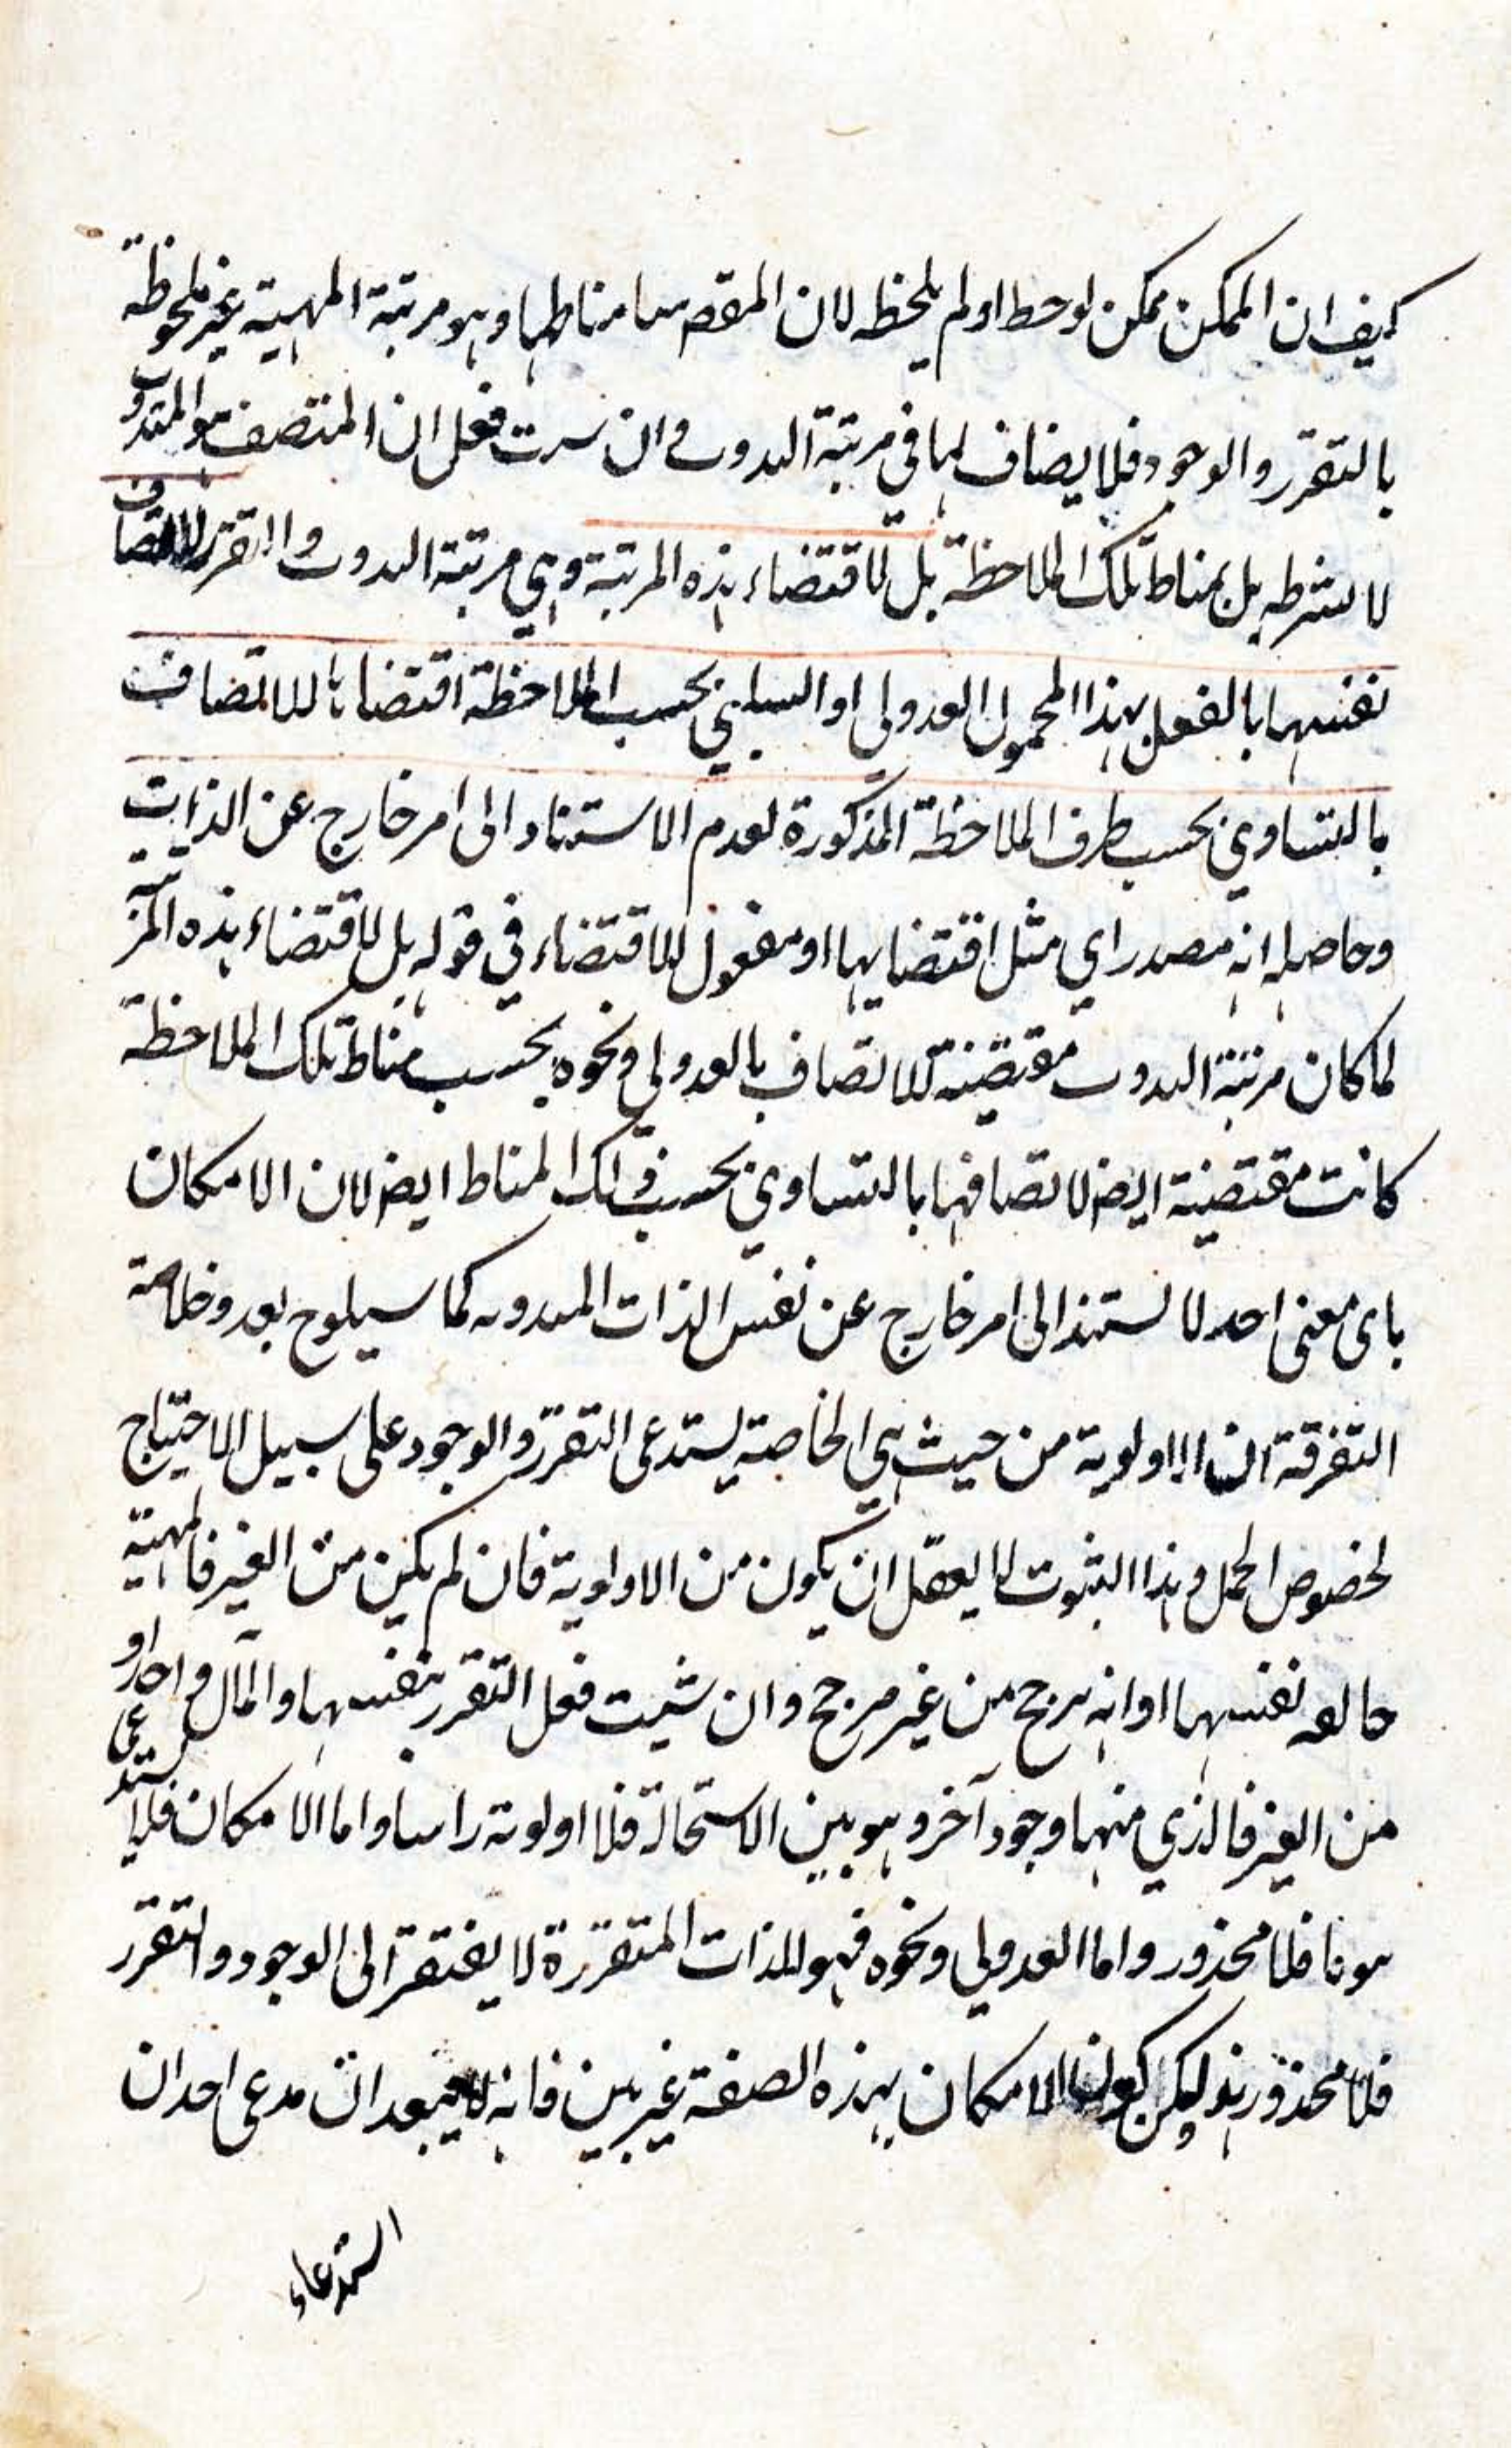 كيف ان الممكن ممكن لوحظ او لم يلحظ لان المقص مناطها وهو مرتبة المهية غير ملحوظة
بالتقرر والوجود فلا يضاف لها في مرتبة البدون وان شئت فعل ان المتصف هو المتقرر
لا بشرطه بل بمناط تلك الملاحظة بل لاقتضاء هذه المرتبة وهي مرتبة البدون واللاتقرر للاتصاف
نفسها بالفعل بهذا المحمول العدولي او السلبي بحسب الملاحظة اقتضاءها للاتصاف
بالتساوي بحسب ظرف الملاحظة المذكورة لعدم الاستناد الى امر خارج عن الذات
وحاصله انه مصدر اي مثل اقتضايها او مفعول للاقتضاء في قوله بل لاقتضاء هذه المرتبة
لما كان مرتبة البدون مقتضية للاتصاف بالعدولي ونحوه بحسب مناط تلك الملاحظة
كانت مقتضية ايض لاتصافها بالتساوي بحسب ذلك المناط ايض لان الامكان
باى معنى احد لا يستند الى امر خارج عن نفس الذات المبدونه كما سيلوح بعد وخلاصة
التفرقة ان الاولوية من حيث هي الخاصة يستدعى التقرر والوجود على سبيل الاحتياج
لخصوص الحمل وهذا الثبوت لا يعقل ان يكون من الاولوية فان لم يكن من الغير فالمهية
جالعه نفسها او انه يرجح من غير مرجح وان شئت فعل التقرر بنفسها والمآل واحد او
من الغير فالذي منها وجود آخر وهو بين الاستحالة فلا اولوية راسا واما الامكان فلا يستدعى
فلا محذور واما العدولي ونحوه فهو للذات المتقررة لا يفتقر الى الوجود والتقرر
فلا محذور هذا لكن كون الامكان بهذه الصفة غير بين فانه لا يبعد ان يدعى احد ان
استدعاء